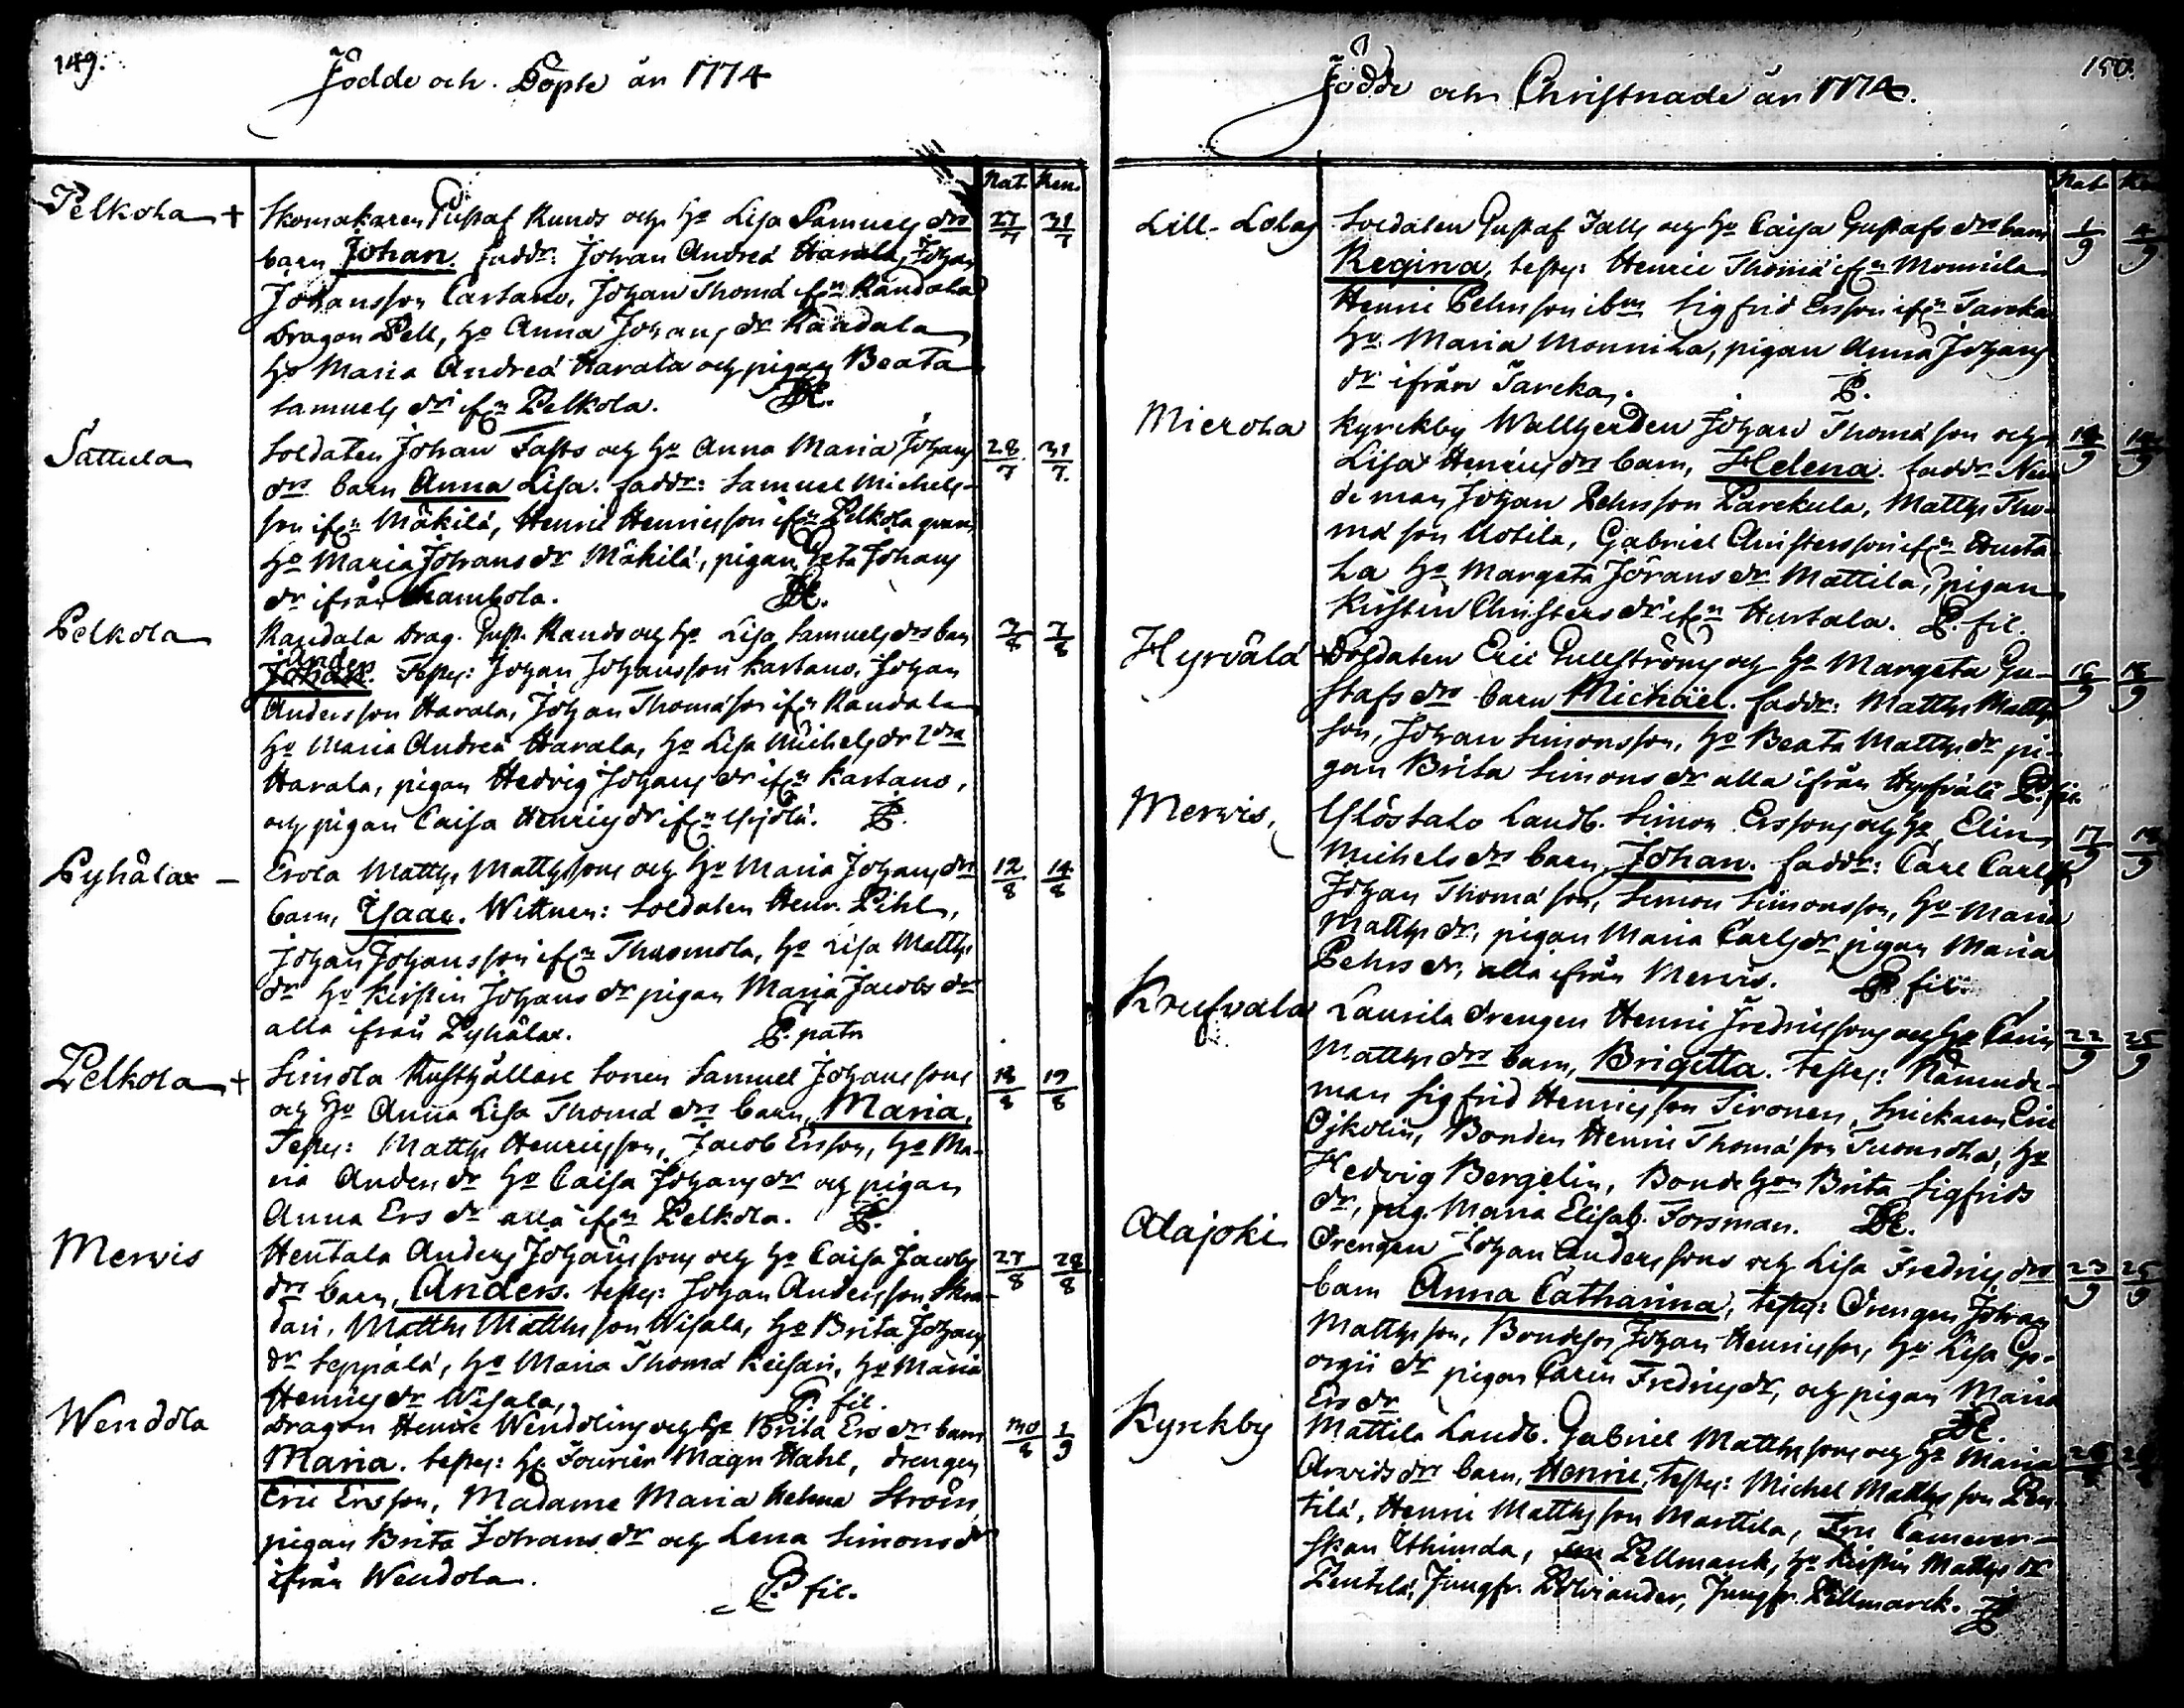 149.
Födde och Döpte år 1774
Nat. Ren.
Pelkola + Skomakaren Gustaf Runds och hu Lisa Samuels drs 27/7 31/7
barn Johan. faddr: Johan Andreæ Harala, Johan
Johansson Castano, Johan Thomæ ifrn Randala
Dragon Pell, hu Anna Johans dr Randala
hu Maria Andreæ Harala och pigan Beata
Samuels dr ifrn Pelkola.
Sattula Soldaten Johan Fasts och hu Anna Maria Johans 28/7 31/7
drs barn Anna Lisa. faddr: Samuel Michels-
son ifrn Mäkilä, Henric Henricsson ifrn Pelkola
hu Maria Johans dr Mäkilä, pigan Greta Johans
dr ifrån
Pelkola Randala Drag. Gust. Rands och hu Lisa Samuels drs barn 7/8 7/8
Ander
Johan. Testes: Johan Johansson Kastano, Johan
Andersson Harala, Johan Thomæson ifrn Randala
hu Maria Andreæ Harala, hu Lisa Michels dr 2dra
Harala, pigan Hedvig Johans dr ifrn Kastano,
och pigan Caisa Henrics dr ifrn
Pyhälax - Erola Matths Matthssons och hu Maria Johans drs 12/8 14/8
barn, Isaac. Wittnen: Soldaten Henr. Pihl,
Johan Johansson ifrn Thuomola, hu Lisa Matths
dr hu Kirstin Johans dr pigan Maria Jacobs dr
alla ifrån Pyhälax. P. patr
Pelkola + Simola Rusthållare Sonen Samuel Johanssons 18/8 19/8
och hu Anna Lisa Thomæ drs barn, Maria.
Testes: Matths Henricsson, Jacob Ersson, hu Ma-
ria Anders dr hu Caisa Johans dr och pigan
Anna Ers dr alla ifrn Pelkola. P.
Mervis Hentala Anders Johanssons och hu Caisa Jacobs 27/8 28/8
drs barn, Anders. testes: Johan Andersson
Matths Matthsson Wisala, hu Brita Johans
dr Seppälä, hu Maria Thomæ Keisari, hu Maria
Henrics dr Wisala, P. fil.
Wendola Dragon Henric Wendolins och hu Brita Ers drs barn 30/8 1/9
Maria. testes: hr Fourier Magn Hahl, drengen
Eric Ersson, Madame Maria Helena Ström,
pigan Brita Johans dr och Lena Simons dr
ifrån Wendola.
P. fil.
150.
Födde och Christnade år 1774.
Nat.
Lill-Lolax Soldaten Gustaf Jalls och hu Caisa Gustafs drs barn 1/9 4/9
Regina, testes: Henric Thomæ ifrn Monnila
Henric Pehrsson ibm Sigfrid Ersson ifrn Tareka
hu Maria Monnila, pigan Anna Johans
dr ifrån Tareka. P.
Mierola Kyrckby Wallherden Johan Thomæson och
Lisa Henrics drs barn, Helena. faddr:
Johan Pehrsson Parekula, Matths Tho-
mæson Uotila, Gabriel Christersson ifrn Hurta-
la hu Margeta Jörans dr Mattila, pigan
Kirstin Christers dr ifrn Hurtala. P. fil.
Hyrvälä Soldaten Eric Gullströms och hu Margeta Gu- 16/9 18/9
stafs drs barn Michäel. faddr: Matths Matths
son, Johan Simonsson, hu Beata Matths dr pi-
gan Brita Simons dr alla ifrån Hyrfvälä P. fil.
Mervis, Ylöstalo Landb. Simon Erssons och hu Elin 17/9 18/9
Michels drs barn, Johan. faddr: Carl Carls
Johan Thomæson, Simon Simonsson, hu Maria
Matths dr, pigan Maria Carls dr pigan Maria
Pehrs dr, alla ifrån Mervis. P. fil.
Krufvala Laurila drengen Henric Fredricssons och hu Carin 22/9 25/9
Matths drs barn, Brigitta. testes: Nämnde-
man Sigfrid Henricsson Tironen, Snickaren Eric
Ojkolin, Bonden Henric Thomæson Tuomola, hu
Hedvig Bergelin, Bonde hun Brita Sigfrids
dr, pig. Maria Elisab. Forsman.
Alajoki Drengen Johan Anderssons och Lisa Fredrics drs 23/9 25/9
barn Anna Catharina, testes: Drengen Johan
Matthsson, Bondeson Johan Henricsson, hu Lisa Ge-
orgii dr pigan Carin Fredrics dr, och pigan Maria
Ers dr
Kyrckby Mattila Landb. Gabriel Matthssons och hu Maria
Arvids drs barn, Henric, testes: Michel Matthsson Pen-
tilä, Henric Matthsson Marttila, Fru Camerer-
skan Pellmarck, hu Kirstin Matths dr
Pentilä, Jungfr. Polviander, Jungfr. Pellmarck.